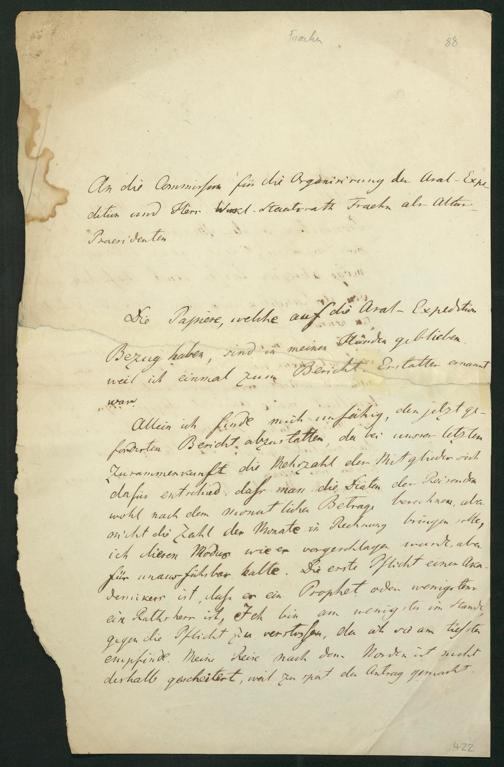 Fraehn
88
An die Commission für die Organisirung der Aral-Expe-
dition und Herr Wirkl. Staatsrath Fraehn als Alters-
Praesidenten
Die Papiere, welche auf die Aral-Expedition
Bezug haben, sind in meinen Händen geblieben
weil ich einmal zum Bericht-Erstatter ernannt
war.
Allein ich finde mich unfähig, den jetzt ge-
forderten Bericht abzustatten, da bei unserer letzten
Zusammenkunft die Mehrzahl der Mitglieder sich
dafür entschied, dass man die Diäten der Reisenden
wohl nach dem monatlichen Betrage berechnen, aber
nicht die Zahl der Monate in Rechnung bringen solle,
ich diesen Modus wie er vorgeschlagen wurde, aber
für unausführbar halte. Die erste Pflicht eines Aka-
demikers ist, dass er ein Prophet oder wenigstens
ein Rathsherr ist, Ich bin am wenigsten im Stande,
gegen die Pflicht zu verstossen, da ich sie am tiefsten
empfinde. Meine Reise nach dem Norden ist nicht
deshalb gescheitert, weil zu spät der Antrag gemacht
422